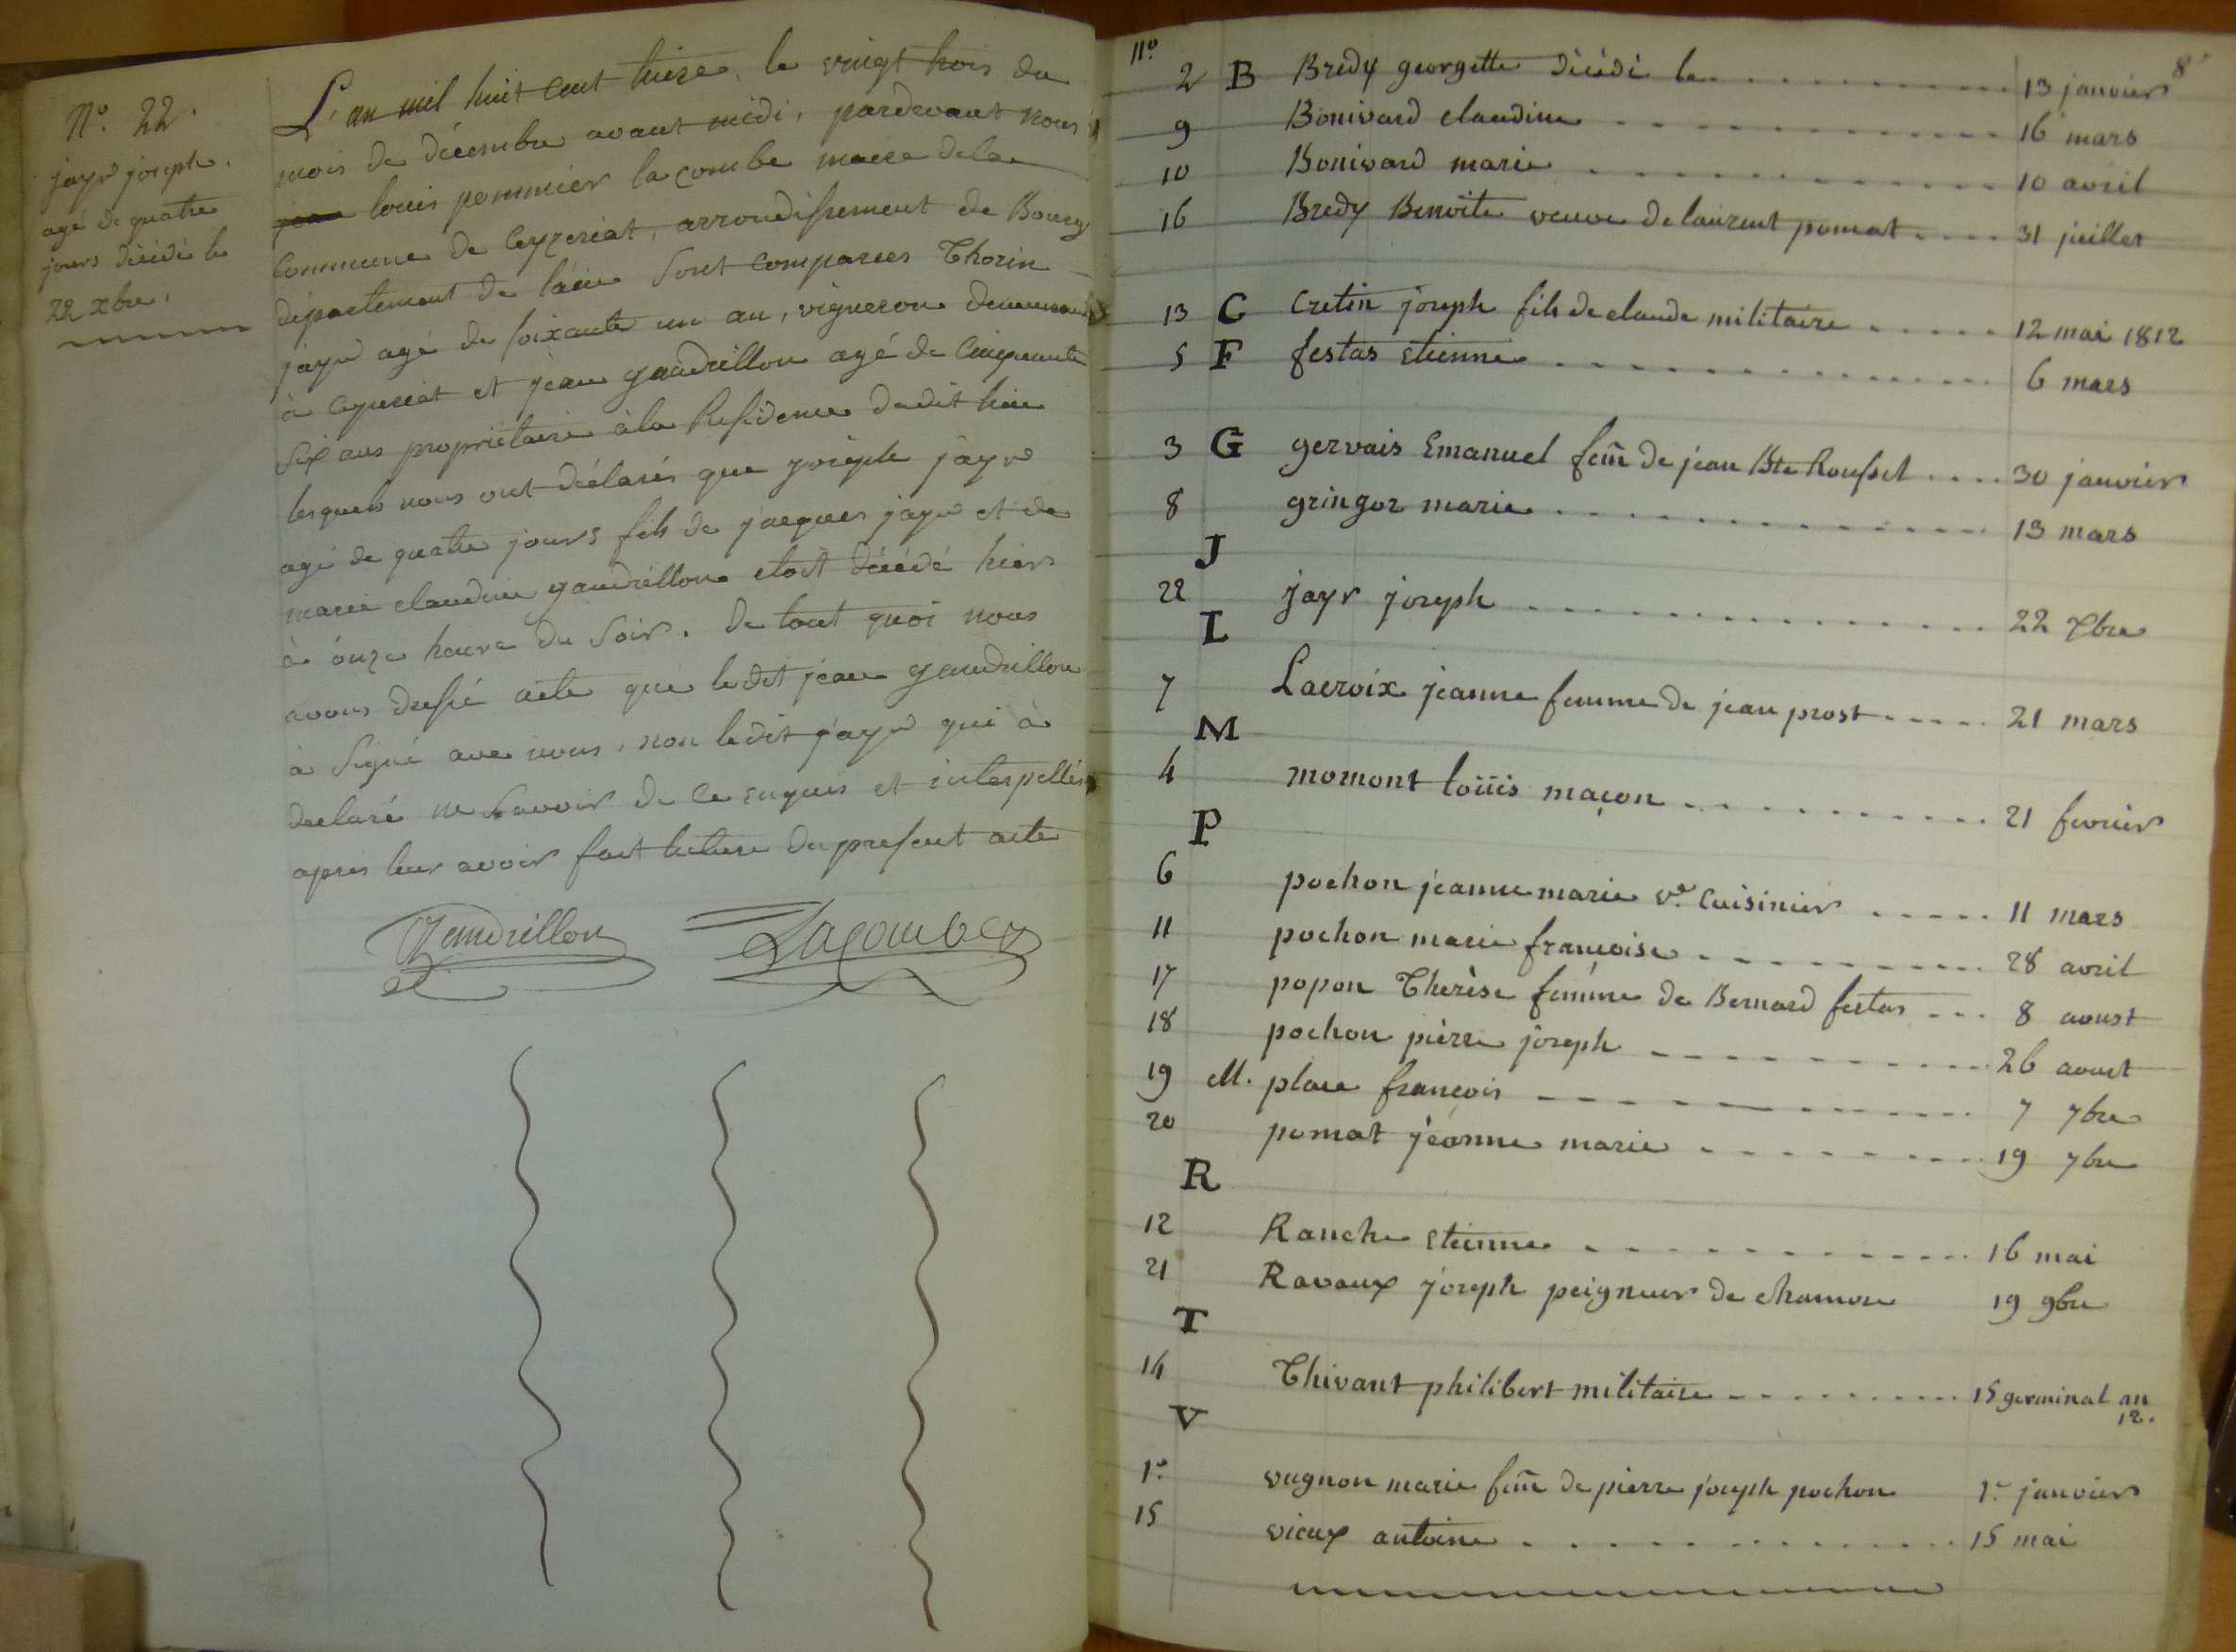 N.° 22.
jayr joseph.
agé de quatre
jours décédé le
22 xbre.
L'an mil huit cent treize, le vingt trois du
mois de décembre avant midi, pardevant nous
louis pommier lacombe maire dela
commune de Ceyzeriat, arrondissement de Bourg
département de l'ain sont comparus Thorin
jayr agé de soixante un an, vigneron demeurant
à ceyzeriat et jean gaudrillon agé de cinquante
six ans propriétaire à la Residence dudit lieu
lesquels nous ont déclarés que joseph jayr
agé de quatre jours fils de jacques jayr et de
marie claudine gaudrillon etoit décédé hier
à onze heure du soir. de tout quoi nous
avons dressé acte que ledit jean gaudrillon
a signé avec nous, non ledit jayr qui à
declaré ne savoir de ce enquis et interpellés
apres leur avoir fait lecture du present acte
Gaudrillon Lacombe
N.° 8
2 B Bredy georgette décédé le 13 janvier
9 Bonivard claudine 16 mars
10 Bonivard marie 10 avril
16 Bredy Benoite veuve de laurent pomat 31 juillet
13 C Cretin joseph fils de claude militaire 12 mai 1812
5 F festas etienne 6 mars
3 G gervais Emanuel fem̃ de jean Bte Rousset 30 janvier
8 gringoz marie 13 mars
J
22 jayr joseph 22 xbre
L
7 Lacroix jeanne femme de jean prost 21 mars
M
4 momont louis maçon 21 fevrier
P
6 pochon jeanne marie v.e cuisinier 11 mars
11 pochon marie francoise 28 avril
17 popon Thérèse femme de Bernard festas 8 aoust
18 pochon pierre joseph 26 aoust
19 M. place françois 7 7bre
20 pomat jeanne marie 19 7bre
R
12 Ranche etienne 16 mai
21 Ravaux joseph peigneur de chanvre 19 9bre
T
14 Thivant philibert militaire 15 germinal an
12.
V
1.r vugnon marie fem̃ de pierre joseph pochon 1.r janvier
15 vieux antoine 15 mai